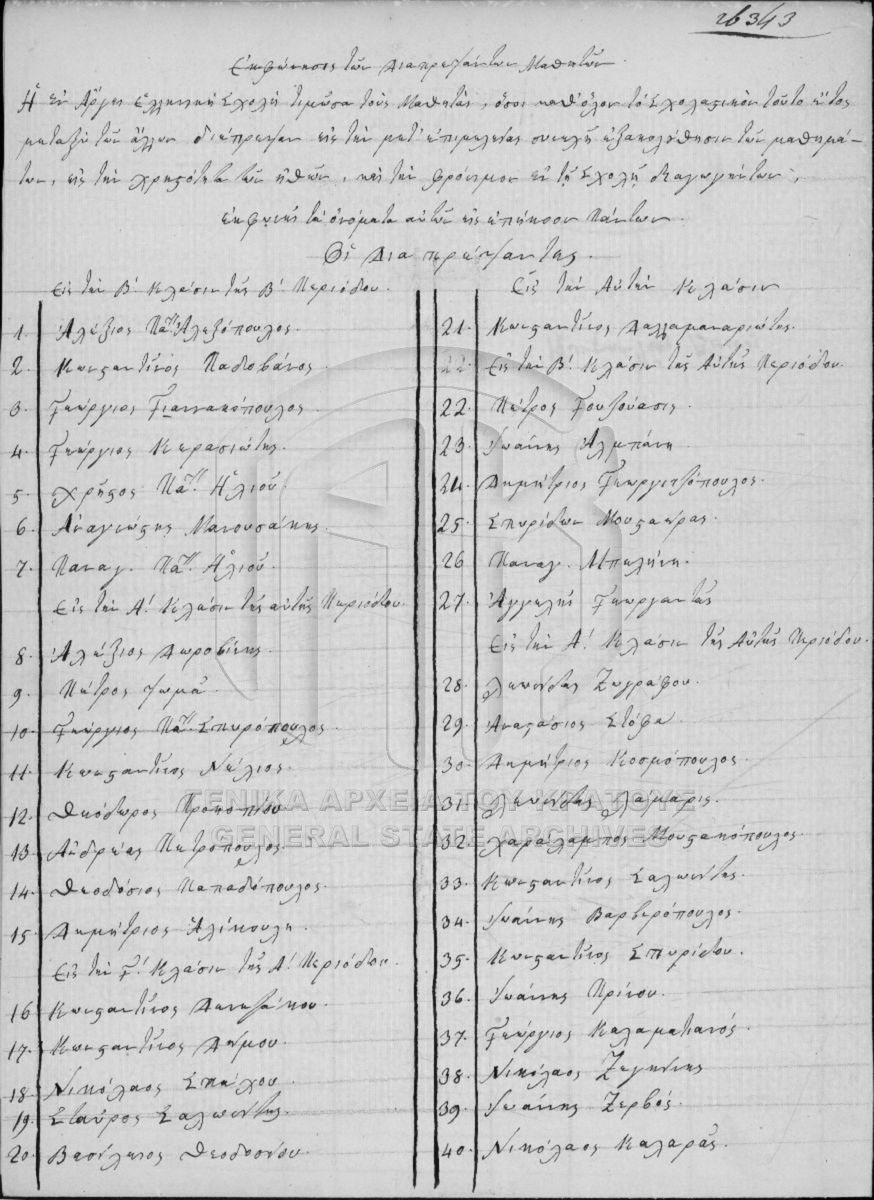 26343
Ἐκφώνησις τῶν Διαπρεψάντων Μαθητῶν.
Ἡ ἐν Ἄργει Ἑλληνικὴ Σχολὴ τιμῶσα τοὺς Μαθητὰς, ὅσοι καθ' ὅλον τὸ Σχολαστικὸν τοῦτο ἔτος
μεταξὺ τῶν ἄλλων διέπρεψαν εἰς τὴν μετ' ἐπιμελείας συνεχῆ ἐξακολούθησιν τῶν μαθημά-
των, εἰς τὴν χρηστότητα τῶν ἠθῶν, καὶ τὴν φρόνιμον ἐν τῇ Σχολῇ διαγωγήν των,
ἐκφωνεῖ τὰ ὀνόματα αὐτῶν εἰς ἐπήκοον πάντων.
Οἱ Διαπρέψαντες.
Εἰς τὴν Β! Κλάσιν τῆς Β! Περιόδου.
1. Ἀλέξιος Πα Ἀλεξόπουλος.
2. Κωνσταντῖνος Παδοβάνος.
3. Γεώργιος Γιαννακόπουλος.
4. Γεώργιος Κερασιώτης.
5. Χρῆστος Πα Ἠλιοῦ
6. Ἀναγνώστης Μανουσάκης.
7. Παναγ. Πα Ἠλιοῦ.
Εἰς τὴν Α! Κλάσιν τῆς αὐτῆς Περιόδου.
8. Ἀλέξιος Δωροβίνης.
9. Πέτρος Θωμᾶ.
10. Γεώργιος Πα Σπυρόπουλος.
11. Κωνσταντῖνος Νέζος.
12. Θεόδωρος Προκοπίου.
13. Ἀνδρέας Πετρόπουλος.
14. Θεοδόσιος Παπαδόπουλος.
15. Δημήτριος
Εἰς τὴν Γ! Κλάσιν τῆς Α! Περιόδου.
16. Κωνσταντῖνος
17. Κωνσταντῖνος Δήμου.
18. Νικόλαος Σπήλιου.
19. Σταῦρος Σαλωνίτης.
20. Βασίλειος Θεοδοσίου.
Εἰς τὴν Αὐτὴν Κλάσιν
21. Κωνσταντῖνος Δαλαμαναριώτης.
22. Εἰς τὴν Β! Κλάσιν τῆς Αὐτῆς Περιόδου.
22. Πέτρος
23. Ἰωάννης Ἀλμπάνη.
24. Δημήτριος Γεωργιτζόπουλος.
25. Σπυρίδων Μουσταΐρας.
26. Παναγ. Μπεκένη.
27. Ἀγγελῆς Γεωργαντᾶς
Εἰς τὴν Α! Κλάσιν τῆς Αὐτῆς Περιόδου.
28. Λεωνίδας Ζωγράφου.
29. Ἀναστάσιος Στόφα.
30. Δημήτριος Κοσμόπουλος.
31. Λεωνίδας Λάμαρις.
32. Χαράλαμπος Μουστακόπουλος.
33. Κωνσταντῖνος Σαλωνίτης.
34. Ἰωάννης Βαρβερόπουλος.
35. Κωνσταντῖνος Σπυρίδου.
36. Ἰωάννης Πρίνου.
37. Γεώργιος Καλαματιανός.
38. Νικόλαος Ζεγκίνης
39. Ἰωάννης Ζερβός.
40. Νικόλαος Καλαρᾶς.
ΓΕΝΙΚΑ ΑΡΧΕΙΑ ΤΟΥ ΚΡΑΤΟΥΣ
GENERAL STATE ARCHIVES